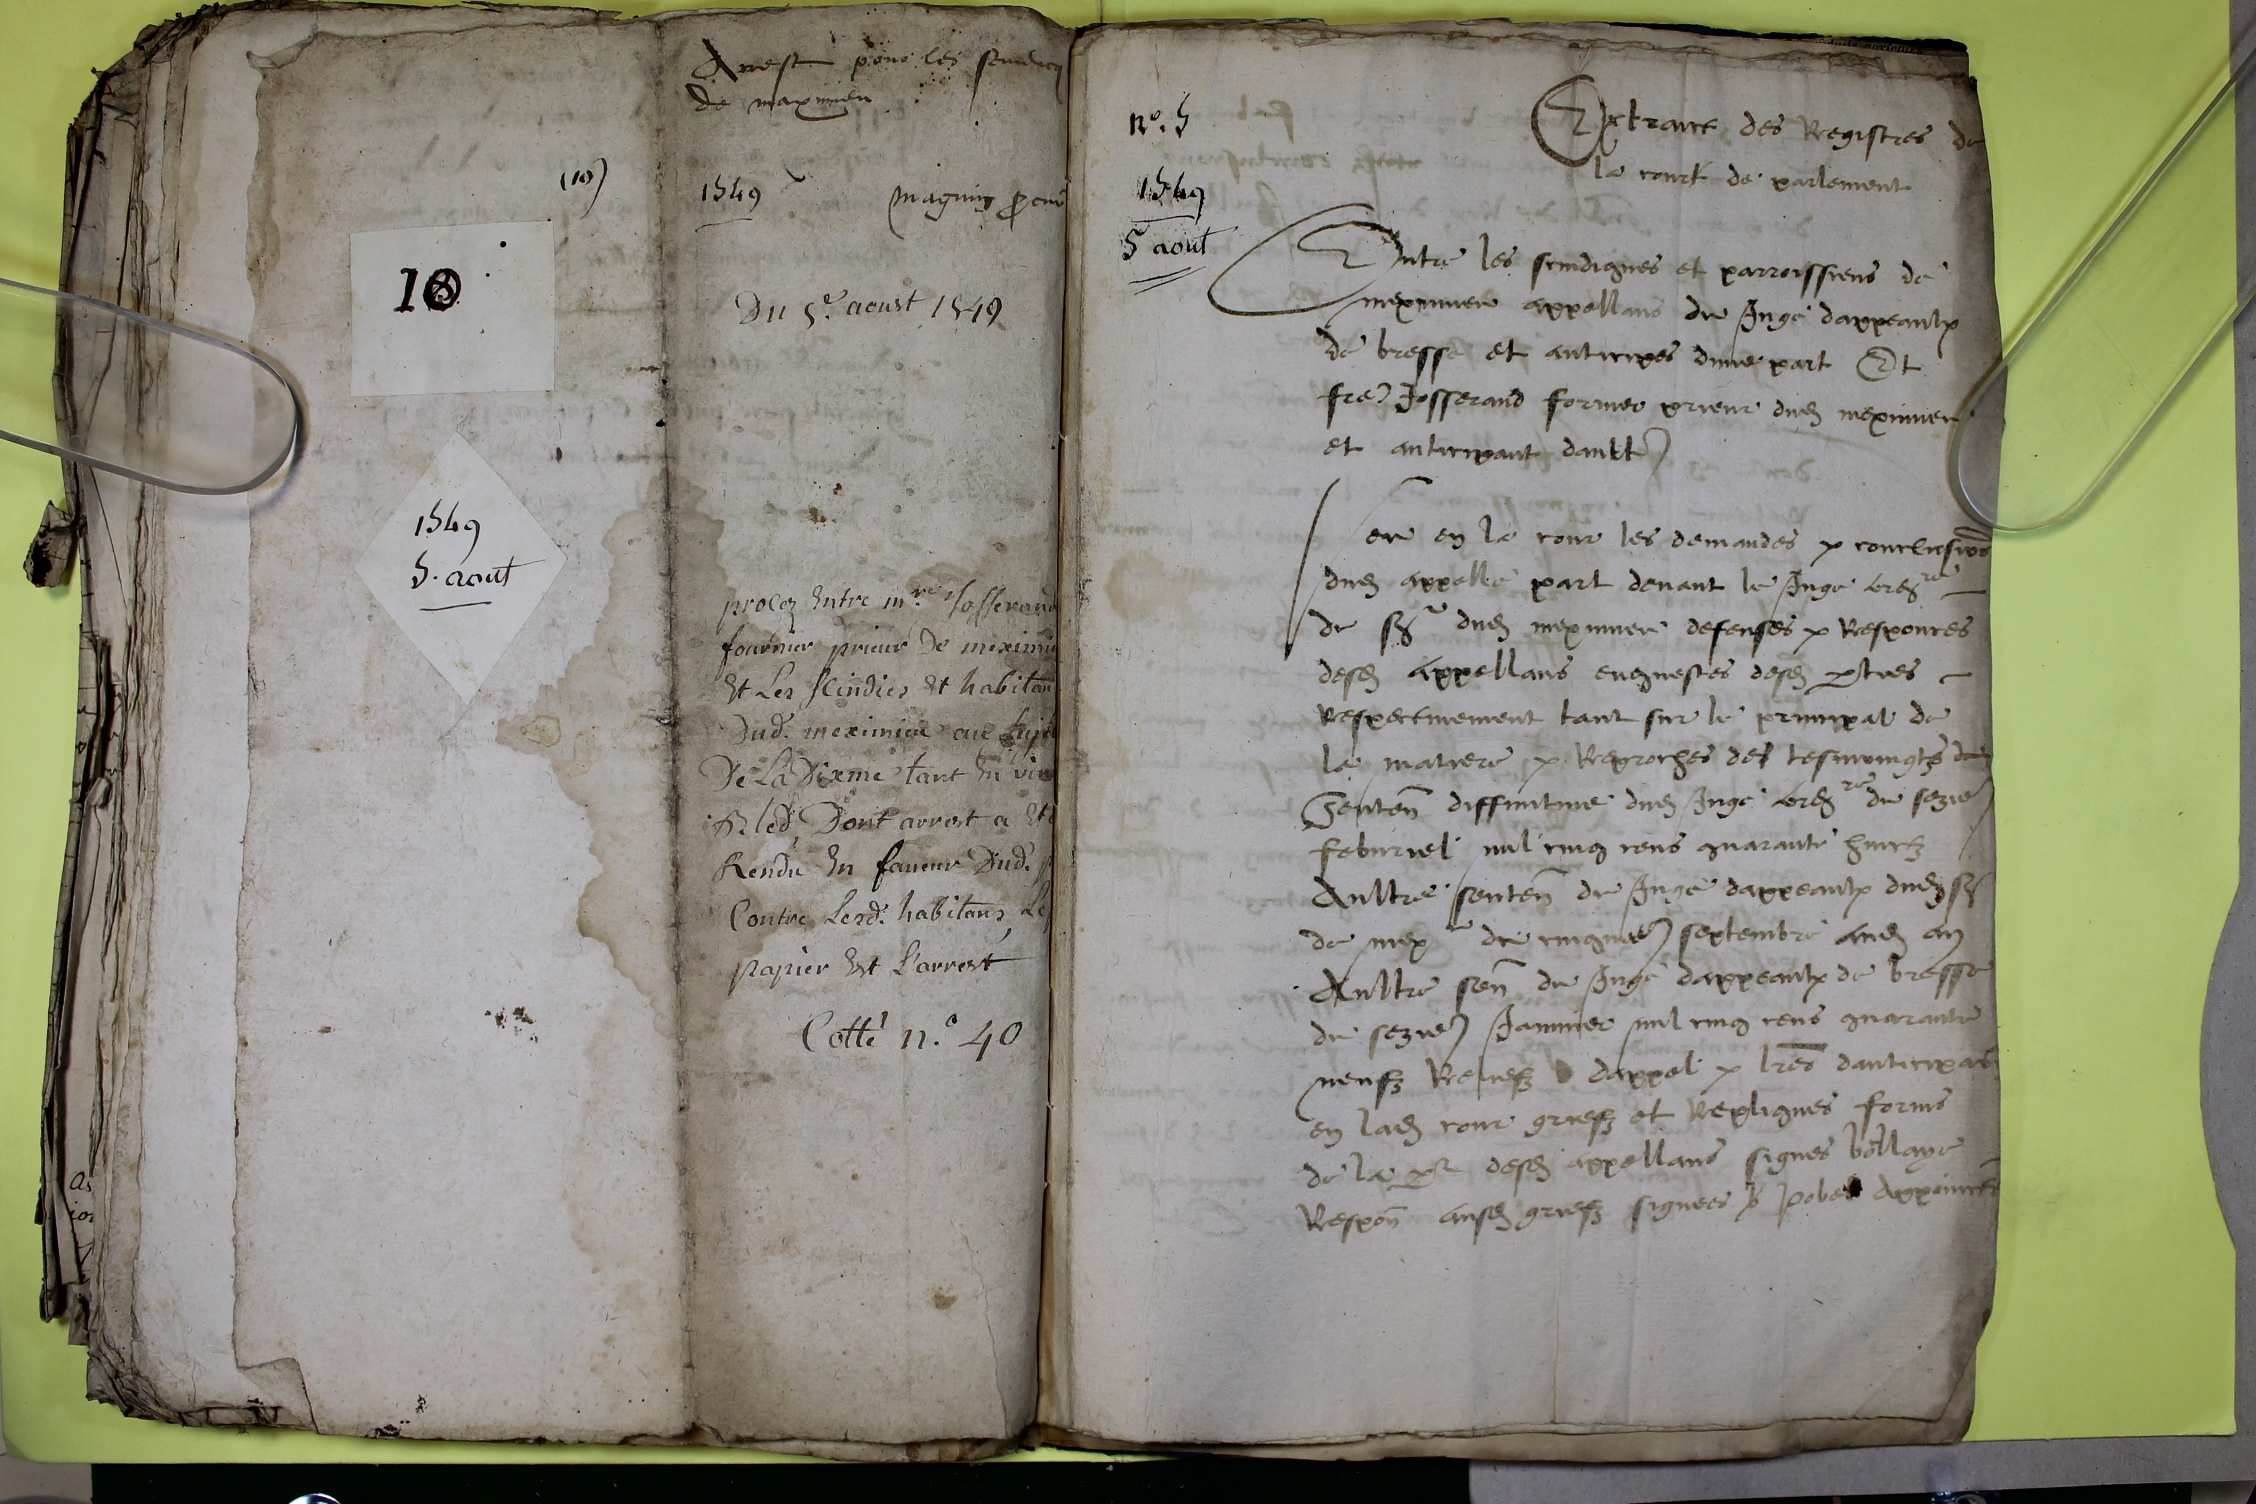 Arrest pour les scindicqz
de maximieu
(10)
10
1549
5. aout
1549
Magnin procur
Du 5.e aoust 1549
procez Entre m.re Josserand
fournier prieur De meximie
Et Les scindics Et habitan
Dud. meximieu au sujet
De La Dixme tant En vin
Bled, Dont arrest a Eté
Rendu En faveur Dud. p
Contre Lesd. habitans, Le
papier Est L'arrest
Cotté n.o 40
n.o 5
1549
5 aout
Extraict des Registres de
la court de parlement
Entre les scindiques et parroissiens de
meximieu appellans du Juge dappeaulx
de bresse et anticipes dune part Et
fre Josserand fornier prieur dud meximieu
et anticipant daultre
Veu en la cour les demandes & conclusions
dud appelle part devant le Juge ordre
de sgr dud meximieu defenses & Responces
desd appellans enquestes desd parties
Respectivement tant sur le principal de
la matiere & Reproches des tesmoingtz
Senten diffinitive dud Juge ordre du sezie
febvrier mil cinq cens quarante huict
Aultre senten du Juge dappeaulx dud sgr
de mex du cinquie septembre aud an
Aultre sen du Juge dappeaulx de bresse
du sezie Janvier mil cinq cens quarante
neufz Reliefz dappel & lres danticipaon
en lad cour griefz et Repliques fornis
de la part desd appellans signes bollaye
Respon ausd griefz signees p pobel Appoincte